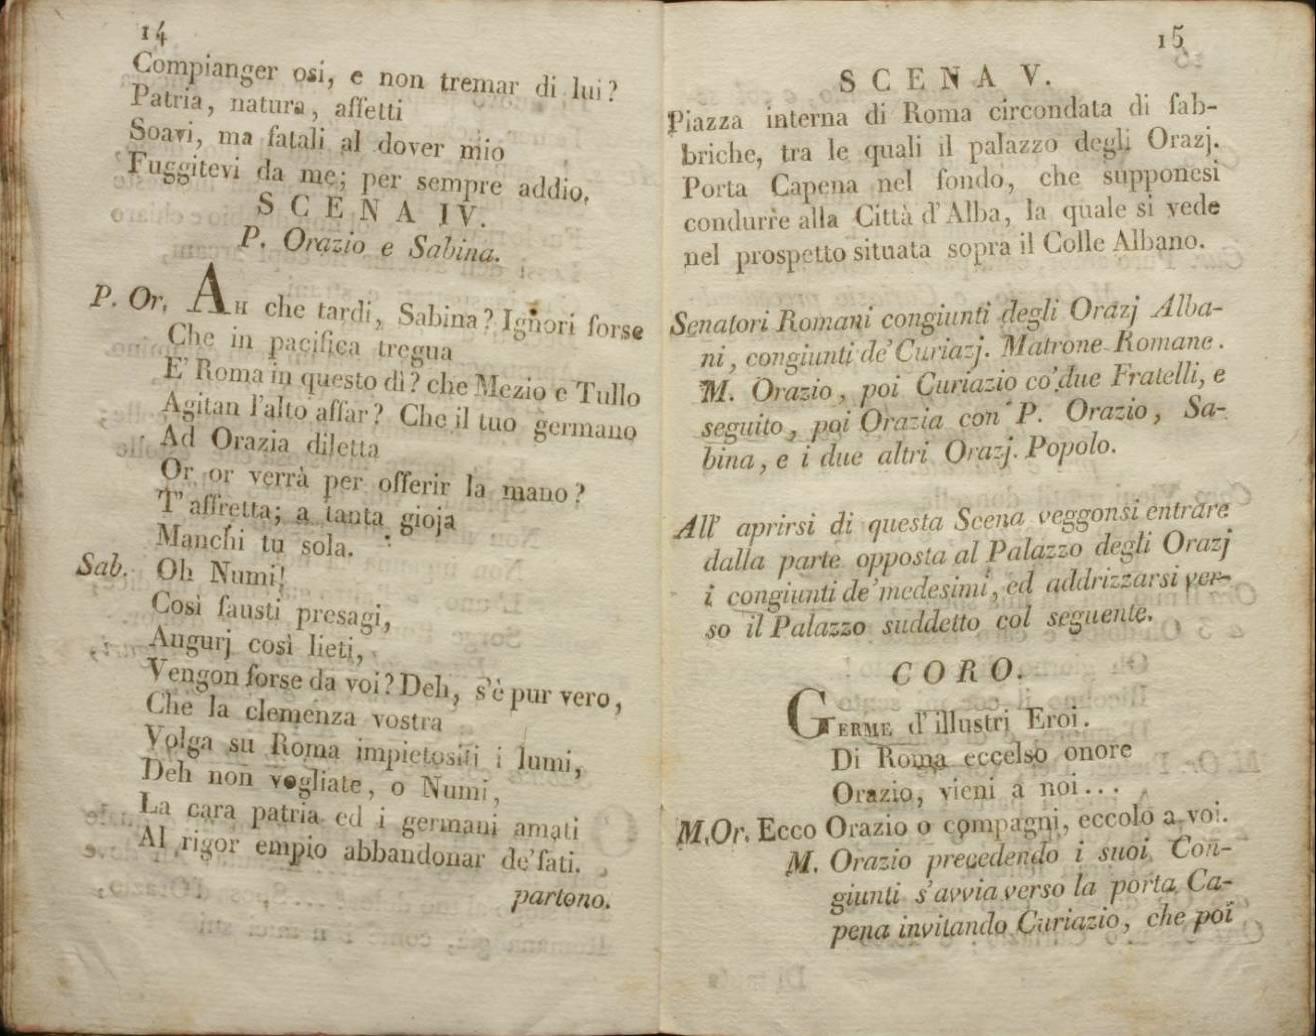 14
Compianger osi, e non tremar di lui?
Patria, natura, affetti
Soavi, ma fatali al dover mio
Fuggitevi da me; per sempre addio.
SCENA IV.
P. Orazio e Sabina.
P. Or. AH che tardi, Sabina? Ignori forse
Che in pacifica tregua
E' Roma in questo dì? che Mezio e Tullo
Agitan l'alto affar? Che il tuo germano
Ad Orazia diletta
Or or verrà per offerir la mano?
T' affretta; a tanta gioja
Manchi tu sola.
Sab. Oh Numi!
Così fausti presagi,
Augurj così lieti,
Vengon forse da voi? Deh, s'è pur vero,
Che la clemenza vostra
Volga su Roma impietositi i lumi,
Deh non vogliate, o Numi,
La cara patria ed i germani amati
Al rigor empio abbandonar de' fati.
partono.
15
SCENA V.
Piazza interna di Roma circondata di fab-
briche, tra le quali il palazzo degli Orazj.
Porta Capena nel fondo, che supponesi
condurre alla Città d'Alba, la quale si vede
nel prospetto situata sopra il Colle Albano.
Senatori Romani congiunti degli Orazj Alba-
ni, congiunti de' Curiazj. Matrone Romane.
M. Orazio, poi Curiazio co' due Fratelli, e
seguito, poi Orazia con P. Orazio, Sa-
bina, e i due altri Orazj. Popolo.
All' aprirsi di questa Scena veggonsi entrare
dalla parte opposta al Palazzo degli Orazj
i congiunti de' medesimi, ed addrizzarsi ver-
so il Palazzo suddetto col seguente.
CORO.
GERME d'illustri Eroi.
Di Roma eccelso onore
Orazio, vieni a noi...
M. Or. Ecco Orazio o compagni, eccolo a voi.
M. Orazio precedendo i suoi Con-
giunti s'avvia verso la porta Ca-
pena invitando Curiazio, che poi